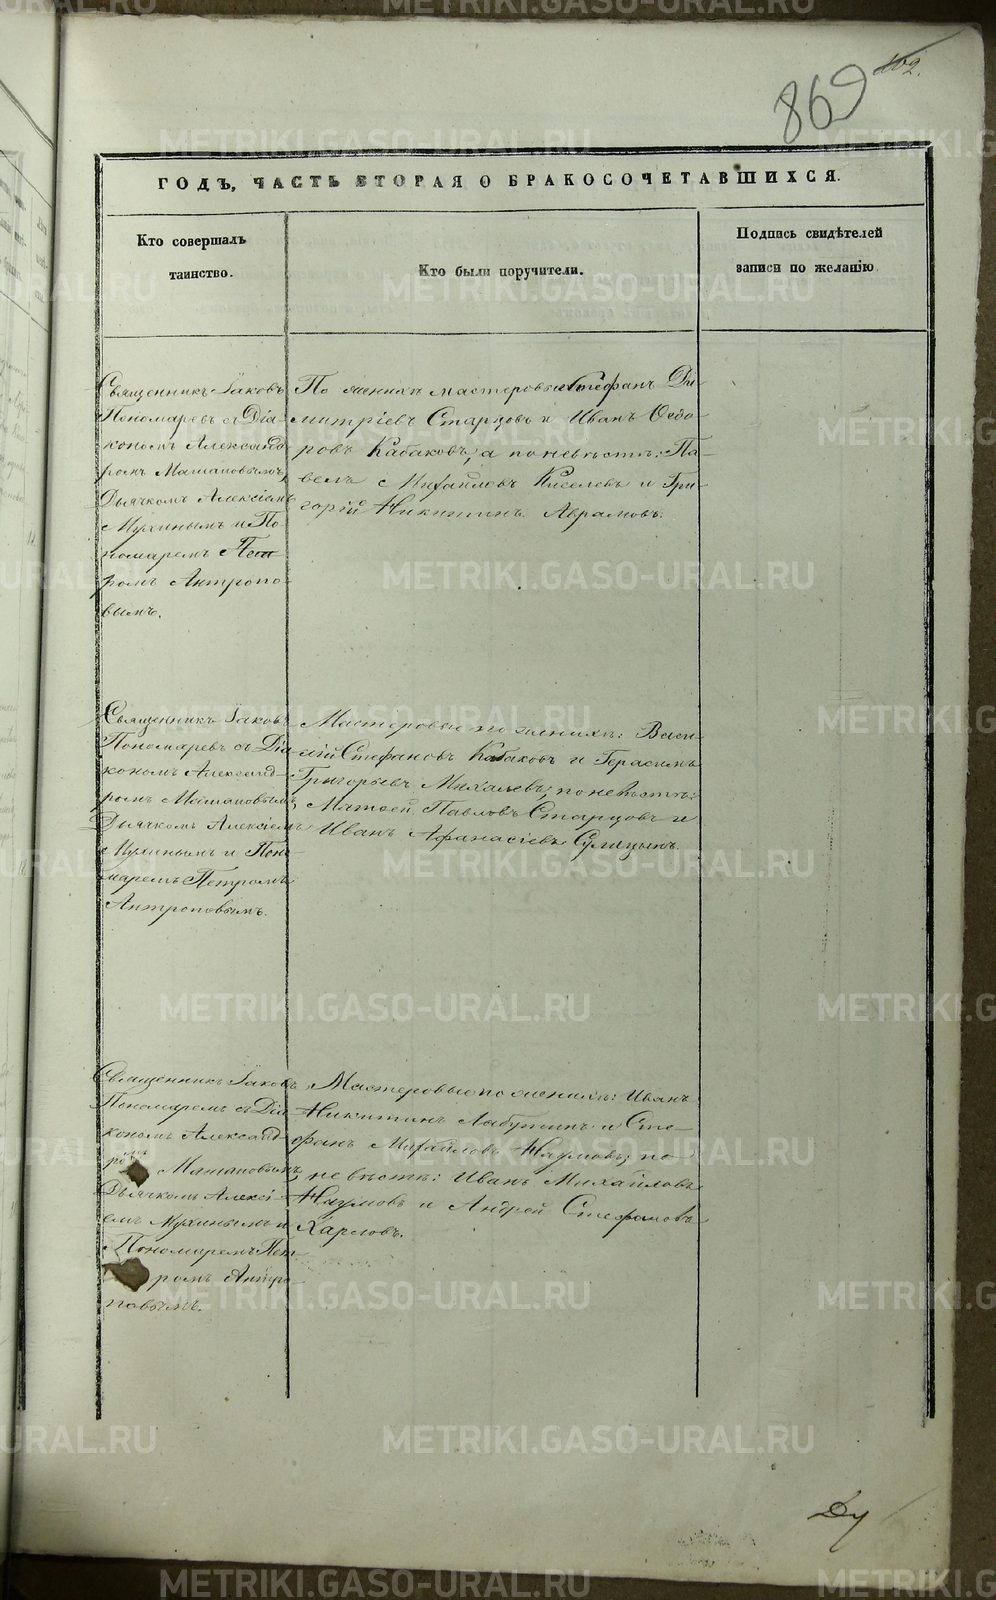 102.
869
ГОДЪ, ЧАСТЬ ВТОРАЯ О БРАКОСОЧЕТАВШИХСЯ.
Кто совершалъ
таинство.
Кто были поручители.
Подпись свидѣтелей
записи по желанію
Священникъ Іаковъ
Пономаревъ съ Діа-
кономъ Александ
ромъ Машановымъ,
Дьячкомъ Алексіемъ
Мухинымъ и По
номаремъ Пет
ромъ Антропо-
вымъ.
По женихѣ мастеровые Стефанъ Ди-
митріевъ Старцовъ и Иванъ Ѳедо-
ровъ Кабаковъ, а по невѣстѣ: Па-
велъ Михайловъ Киселевъ и Гри-
горій Никитинъ Аврамовъ.
Священникъ Іаковъ
Пономаревъ съ Діа
кономъ Александ-
ромъ Машановымъ,
Дьячкомъ Алексіемъ
Мухинымъ и Поно
маремъ Петромъ
Антроповымъ.
Мастеровые по женихѣ: Васи-
лій Стефановъ Кабаковъ и Герасимъ
Григорьевъ Михалевъ; по невѣстѣ:
Матвей Павловъ Старцовъ и
Иванъ Афанасіевъ
Священникъ Іаковъ
Пономаремъ съ Діа
кономъ Александ
ромъ Машановымъ,
Дьячкомъ Алексі-
емъ Мухинымъ и
Пономаремъ Пет-
ромъ Антро-
повымъ.
Мастеровые по женихѣ: Иванъ
Никитинъ Лабутинъ и Сте-
фанъ Михайловъ Наумовъ; по
невѣстѣ: Иванъ Михайловъ
Наумовъ и Андрей Стефановъ
Харловъ.
METRIKI.GASO-URAL.RU